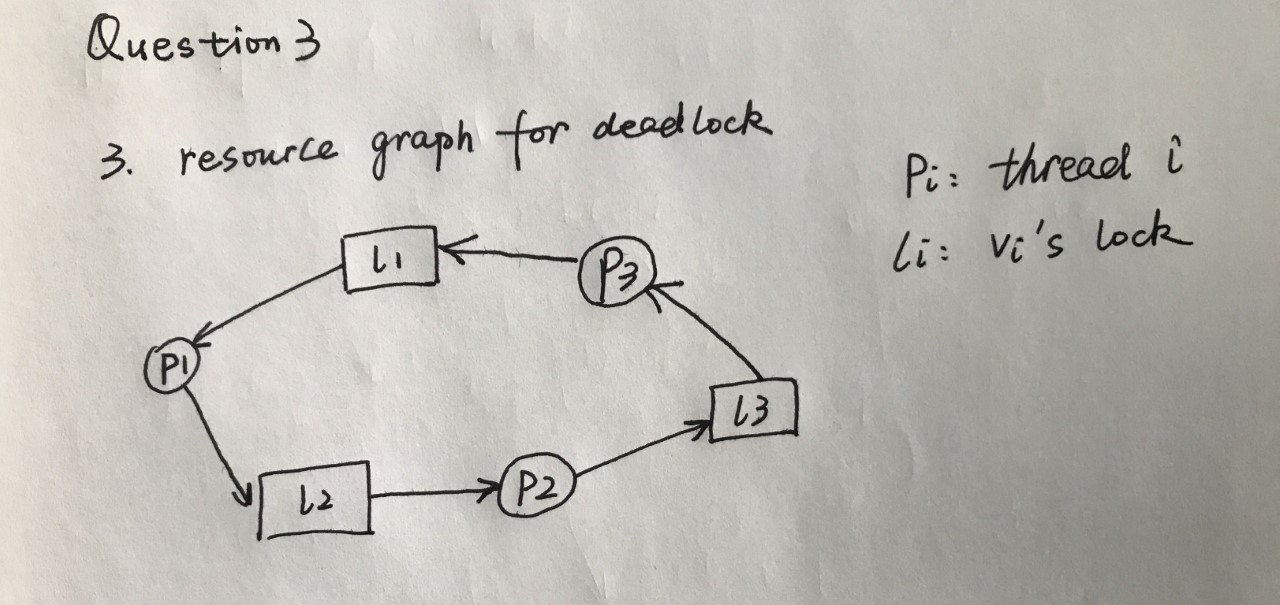 Question 3
3. resource graph for deadlock
Pi: thread i
li: vi's lock
l1
P3
P1
l3
l2
P2